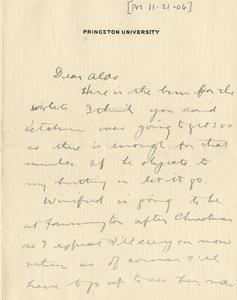 [PM 11-21-06]
PRINCETON UNIVERSITY
Dear Aldo
Here is the bum for the
violets. I think you said
Ketchum was going to get 200
so there is enough for that
number. If he objects to
my butting in let it go.
Winifred is going to be
at Farmington after Christmas
so I expect I'll see you more
often as of course I'll
have to go up to see her now